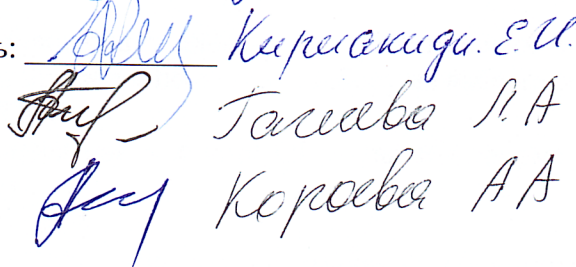 ь: Кириакиди. Е.И.
Гагиева Л.А
Кораева А А